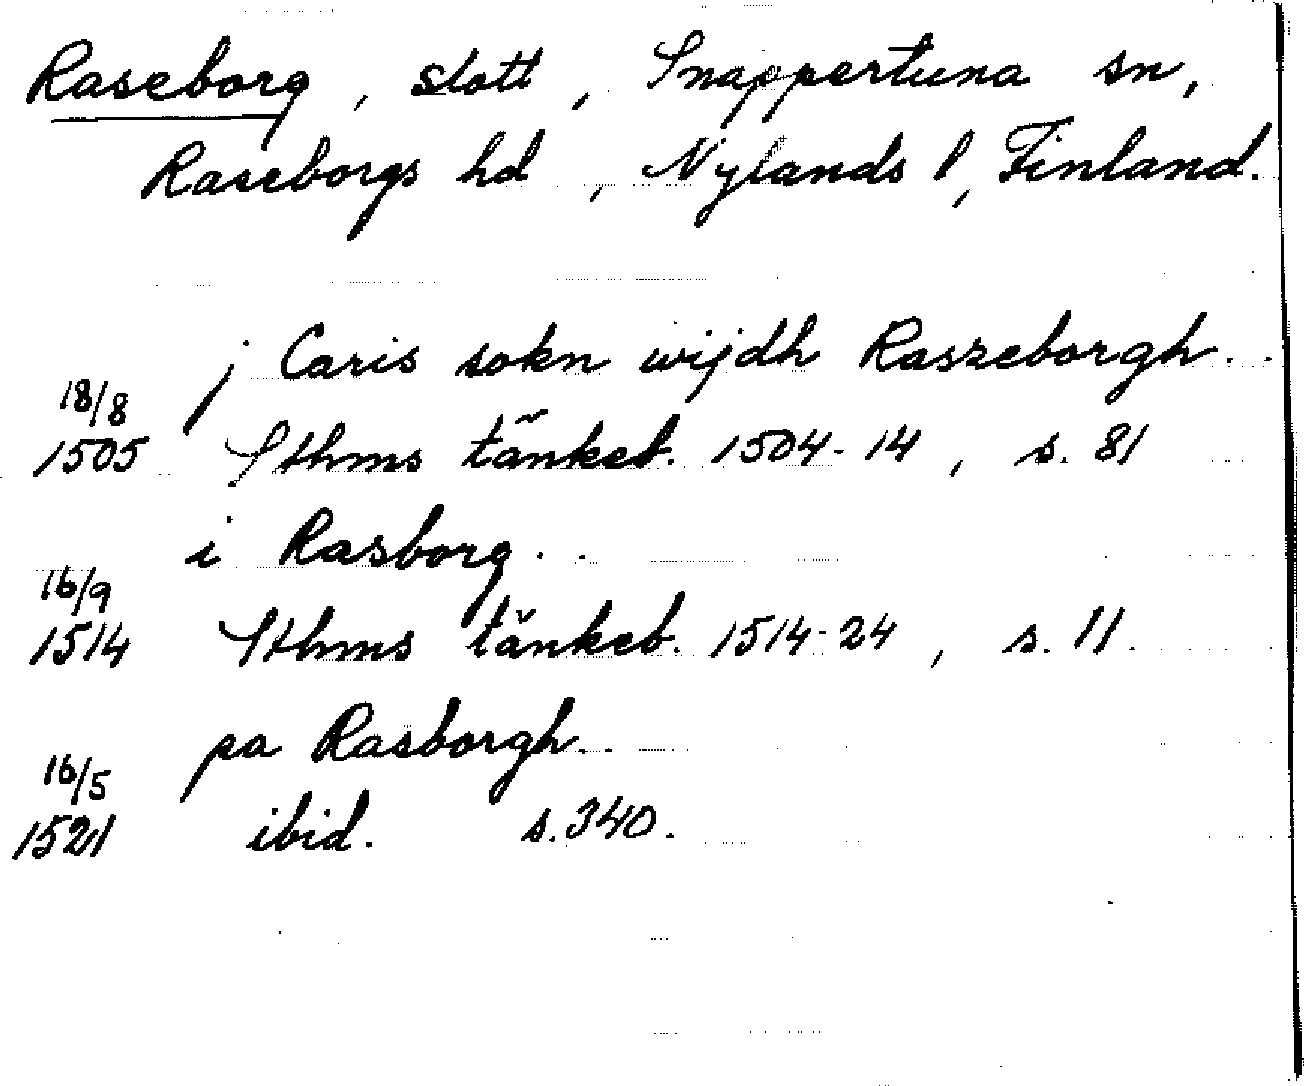 Raseborg, slott, Snappertuna sn,
Raseborgs hd, Nylands l, Finland.
j Caris sokn wijdh Raszeborgh..
18/8
1505 Sthms tänkeb. 1504-14, s. 81
i Rasborg..
16/9
1514 Sthms tänkeb. 1514-24, s. 11.
pa Rasborgh..
16/5
1521 ibid. s. 340.